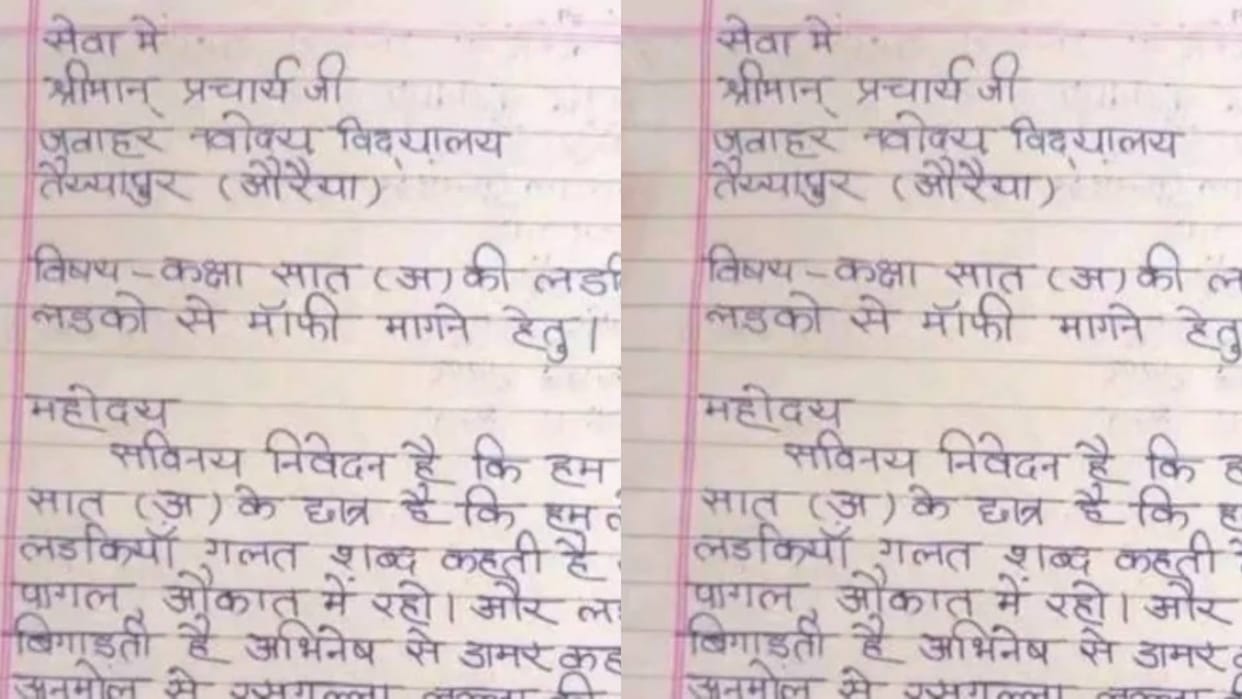 सेवा में
श्रीमान् प्रचार्य जी
जवाहर नवोदय विद्यालय
तैय्यापुर (औरैया)
विषय - कक्षा सात (अ) की
लडको से मॉफी मागने हेतु।
महोदय
सविनय निवेदन है कि हम
सात (अ) के छात्र है कि हम
लडकियाँ गलत शब्द कहती है
पागल औकात में रहो। और
बिगाड़ती है अभिनेष से डामर
अनमोल से रसगुल्ला
सेवा में
श्रीमान् प्रचार्य जी
जवाहर नवोदय विद्यालय
तैय्यापुर (औरैया)
विषय - कक्षा सात (अ) की
लडको से मॉफी मागने हेतु
महोदय
सविनय निवेदन है कि
सात (अ) के छात्र है कि
लडकियाँ गलत शब्द कहती
पागल औकात में रहो। और
बिगाड़ती है अभिनेष से डामर
अनमोल से रसगुल्ला